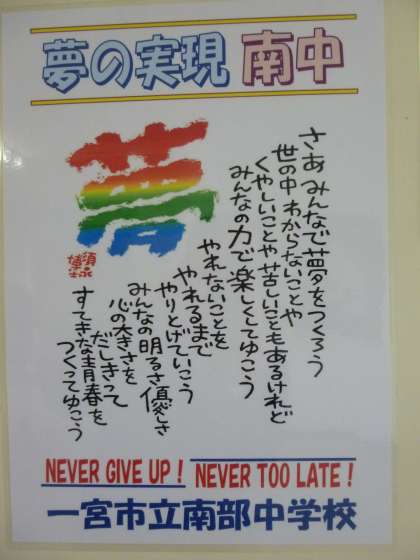 夢の実現 南中
夢
さあ みんなで夢をつくろう
世の中 わからないことや
くやしいことや苦しいこともあるけれど
みんなの力で楽しくしてゆこう
やれないことを
やれるまで
やりとげていこう
みんなの明るさ 優しさ
心の大きさを
だしきって
すてきな青春を
つくってゆこう
NEVER GIVE UP! NEVER TOO LATE!
一宮市立南部中学校